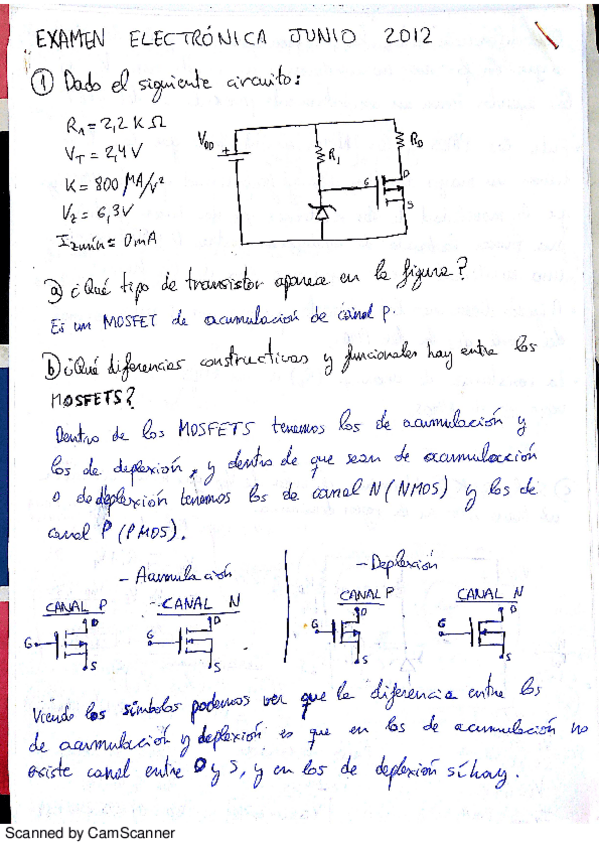 EXAMEN ELECTRÓNICA JUNIO 2012
① Dado el siguiente circuito:
R1 = 2,2 KΩ
VT = 2,4V
K = 800 MA/V²
Vz = 6,3V
Izmín ≈ 0mA
VDD
+
R1
RD
G
D
S
a) ¿Qué tipo de transistor aparece en la figura?
Es un MOSFET de acumulación de canal P.
b) ¿Qué diferencias constructivas y funcionales hay entre los
MOSFETS?
Dentro de los MOSFETS tenemos los de acumulación y
los de deplexión, y dentro de que sean de acumulación
o de deplexión tenemos los de canal N (NMOS) y los de
canal P (PMOS).
- Acumulación
- Deplexión
CANAL P
CANAL N
CANAL P
CANAL N
G D S
G D S
G D S
G D S
Viendo los símbolos podemos ver que la diferencia entre los
de acumulación y deplexión es que en los de acumulación no
existe canal entre D y S, y en los de deplexión sí hay.
Scanned by CamScanner